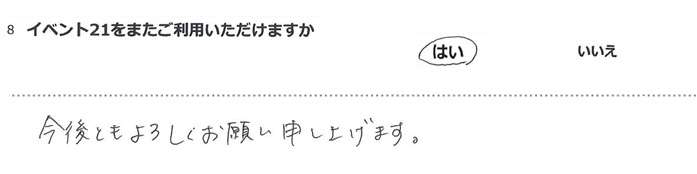 8 イベント21をまたご利用いただけますか
はい いいえ
今後ともよろしくお願い申し上げます。